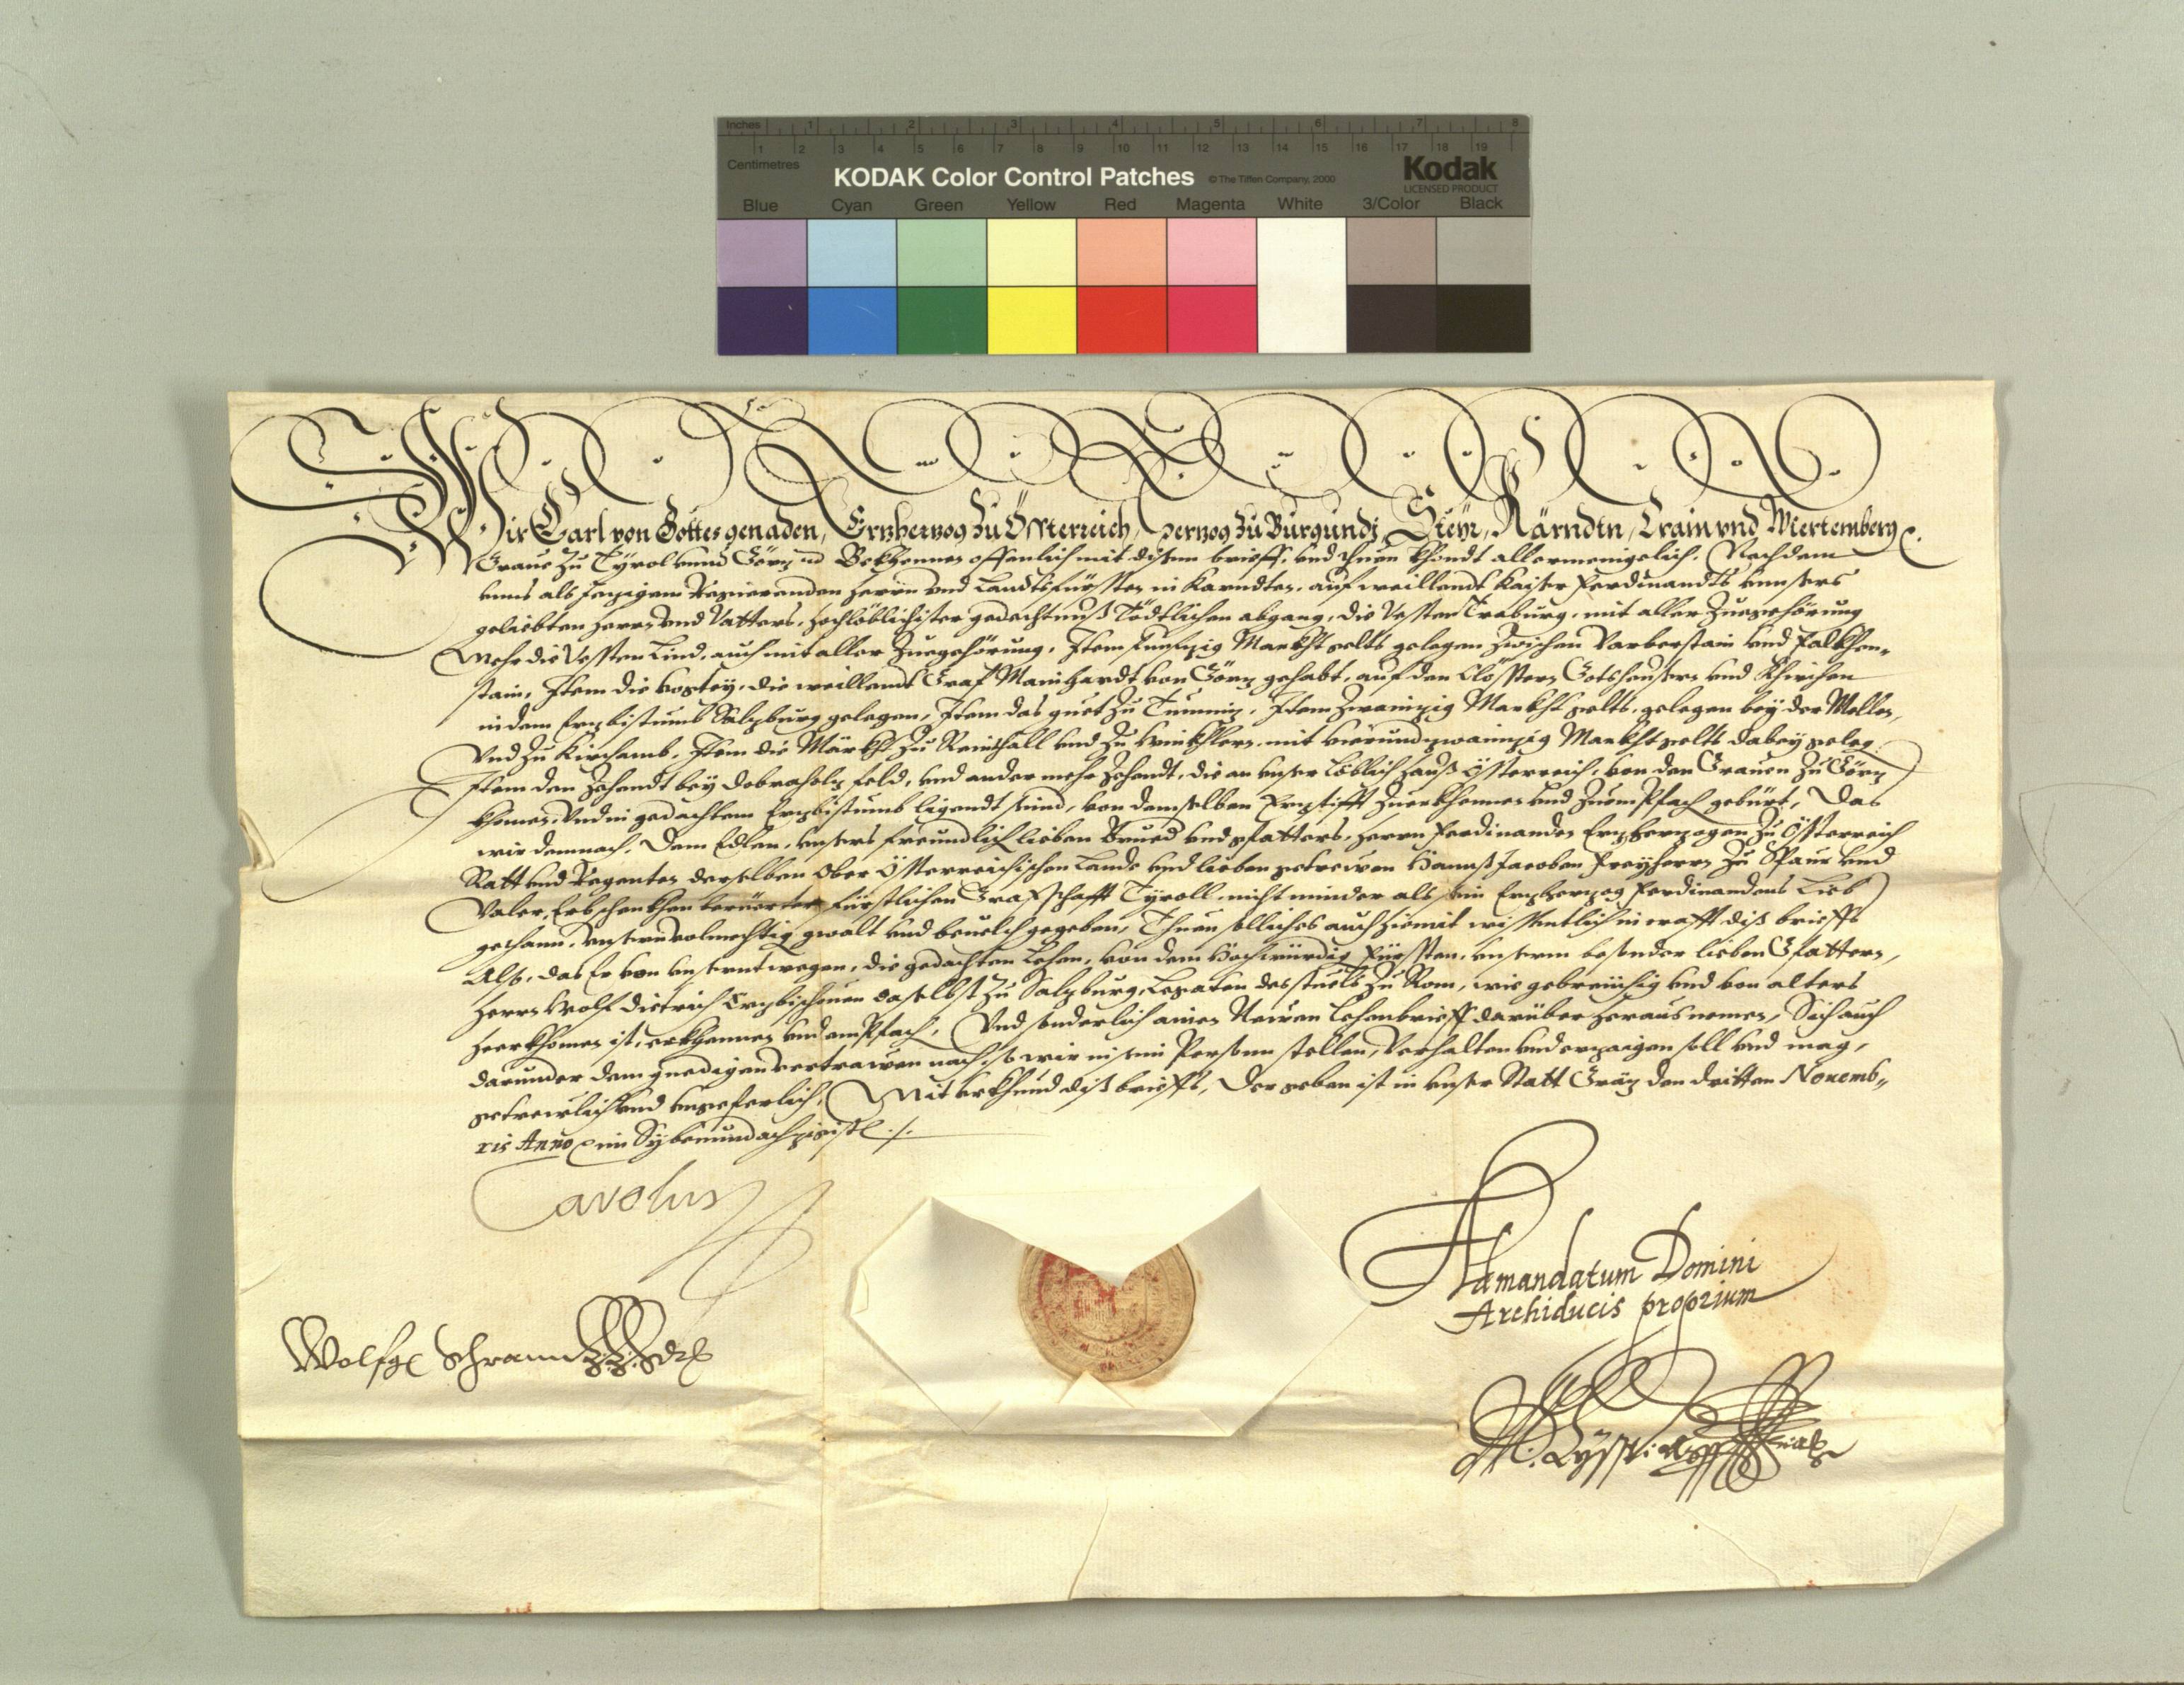 Inches 1 2 3 4 5 6 7 8
1 2 3 4 5 6 7 8 9 10 11 12 13 14 15 16 17 18 19
Centimetres
KODAK Color Control Patches © The Tiffen Company, 2000 Kodak
LICENSED PRODUCT
Blue Cyan Green Yellow Red Magenta White 3/Color Black
Wir Carl von Gottes genaden, Ertzhertzog zu Össterreich, Hertzog zu Burgundj, Steyr, Kärndtn, Crain vnd Wiertemberg
Graue zu Tyrol vnnd Görtz Bekhennen offenlich mit disem brieff, vnd thuen khundt allermenigelich, Nachdem
vnns als jetzigem Regierenden Herrn vnd Landtsfürsten in Karndten, auf weillendt Kaiser Ferdinandts vnnsers
geliebten Herrn vnd Vatters, hochlöblichister gedechtnuß Tödtlichen abgang, die Vessten Traburg, mit aller Zuegehörung
Mehr die Vessten Lind, auch mit aller Zuegehörung, Item funftzig Markht gelts gelegen zwischen Varberstain vnd Falkhen„
stain, Item die vogtey, die weillendt Graf Mainhardt von Görtz gehabt, auf den Clösstern Gotsheusern vnd Khirchen
in dem Ertzbistumb Saltzburg gelegen, Item das guet zu Item zwaintzig Markht gelts, gelegen bey der Mellen,
Vnd zu Kirchamb, Item die Märkht zu Reinthall vnd zu Winkhlern mit vierundzwaintzig Markht gelts dabey geleg:
Item den Zehendt bey feld, vnd ander mehr Zehendt, die an vnser Löblich Hauß Össterreich, von den Grauen zu Görtz
khomen, vnd in gedachtem Ertzbistumb ligendt sind, von demselben Ertzstifft zuerkhennen vnd zuempfach gebürt, Das
wir demnach, dem Edlen, vnsers freundlich lieben Brueder vnd gfatters, Herrn Ferdinanden Ertzhertzogen zu Össterreich
Ratt vnd Regenten derselben Ober Össterreichischen Lande vnd lieben getrewen Hannß Jacoben Freyherrn zu Spaur vnd
Valer, Erbschenkhen berüerter fürstlichen Grafschafft Tyroll, nicht minder als sein Ertzhertzog Ferdinandens Lieb
gethann, vnsern volmechtig gwalt vnd beuelch gegeben, Thuen solliches auch hiemit wissentlich in crafft diß brieffs
Also, das Er von vnserntwegen, die gedachten Lehen, von dem Hochwürdig Fürsten, vnserm besonder lieben Gfattern,
Herrn Wolf Dietrich Ertzbischouen daselbst zu Saltzburg, Legaten des stuels zu Rom, wie gebreüchig vnd von alters
heerkhomen ist, erkhennen vnd empfach, Vnd sonderlich ainen Neuen Lehenbrieff darüber heraus nemen, Sich auch
darunder dem gnedigen vertrawen nach, so wir in sein Person stellen, verhalten vnd ertzaigen soll vnd mag,
getrewlich vnd vngeferlich, Mit vrkhund diß brieffs, Der geben ist in vnser Statt Grätz den dritten Nouemb„
ris Anno im Sybenundachtzigist
Carolus
Wolfg Schrantz
Ad mandatum Domini
Archiducis proprium